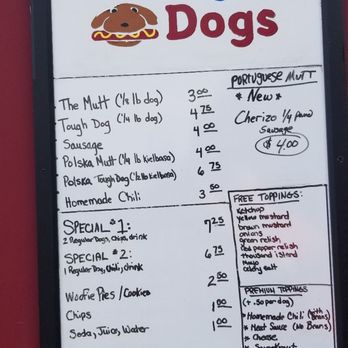 Dogs
The Mutt (1/8 lb dog) 3.00
Tough Dog (1/4 lb dog) 4.75
Sausage 4.00
Polska Mutt (1/4 lb Kielbasa) 4.00
Polska Tough Dog (1/2 lb Kielbasa) 6.75
Homemade Chili 3.50
PORTUGUESE MUTT
* New *
Cherizo 1/4 pound
Sausage
$4.00
SPECIAL #1: 7.25
2 Regular Dogs, Chips, drink
SPECIAL #2: 6.75
1 Regular Dog, Chili, drink
Woofie Pies / Cookies 2.50
Chips 1.00
Soda, Juice, Water 1.00
FREE TOPPINGS:
Ketchup
yellow mustard
brown mustard
onions
green relish
red pepper relish
thousand island
Mayo
celery salt
PREMIUM TOPPINGS
(+ .50 per dog)
* Homemade Chili (with Beans)
* Meat Sauce (No Beans)
* Cheese
* Sauerkraut